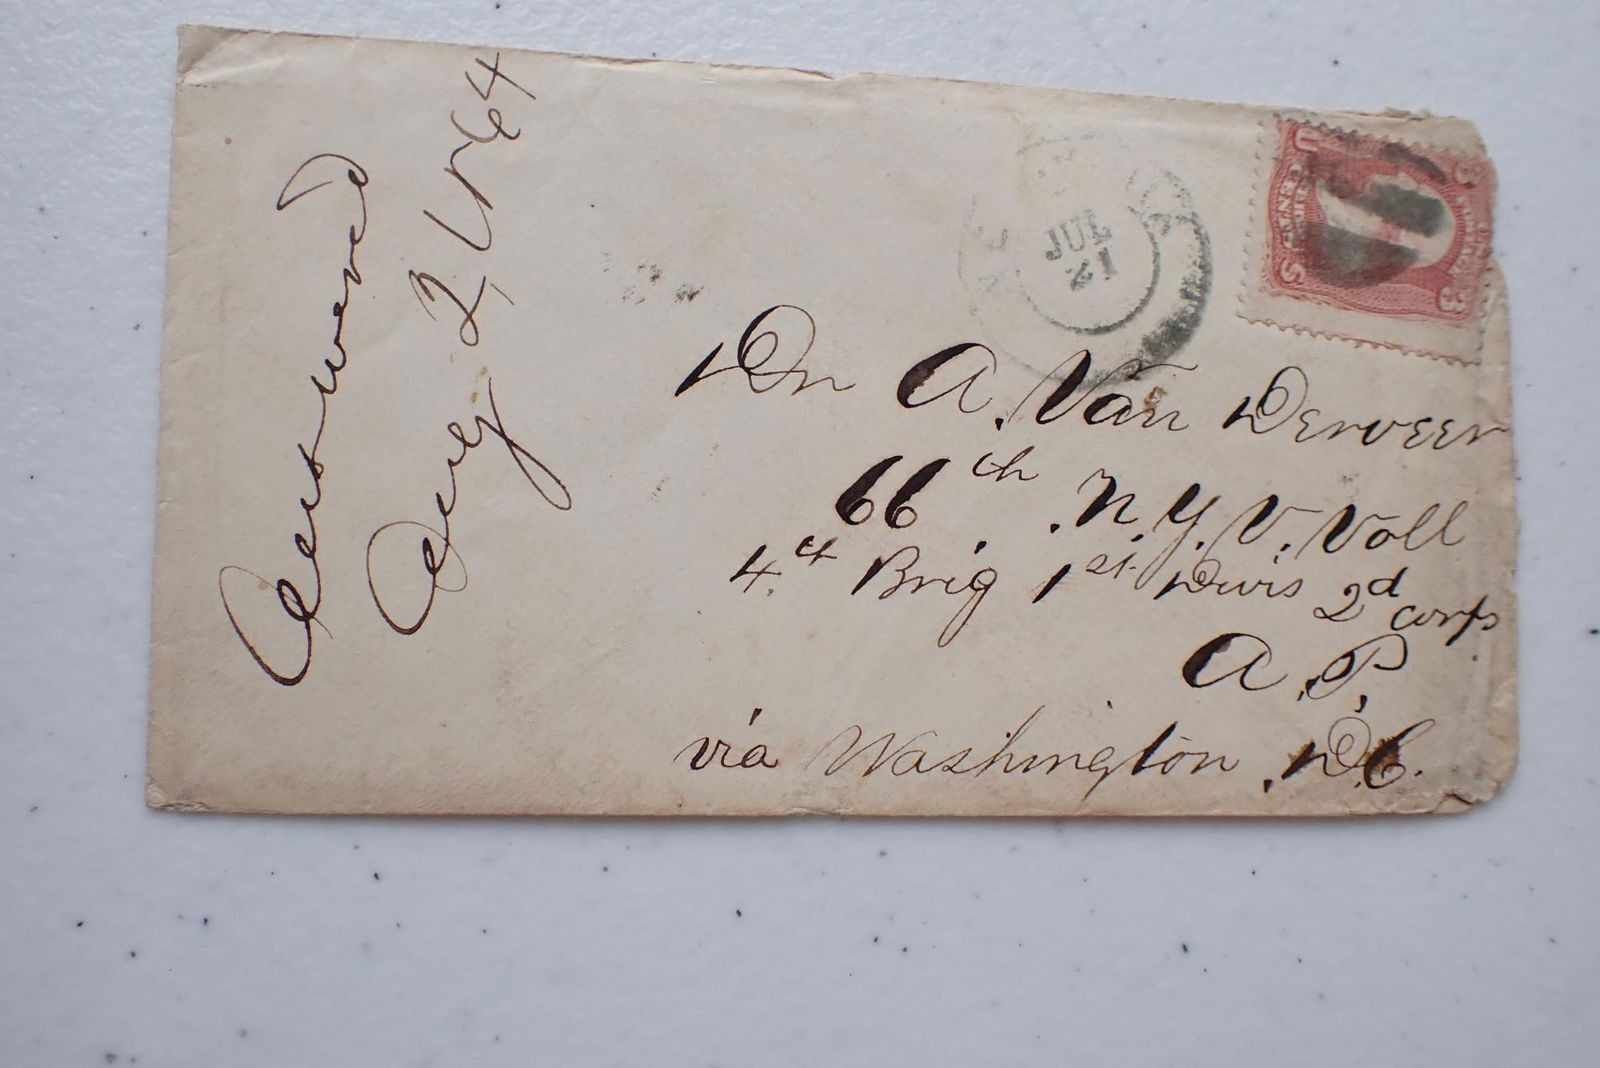 Answered
Aug 2, 1864
JUL
21
U
3
S
3
Dr A. Van Derveer
66th N.Y. V. Voll
4th Brig 1st Divis 2d corps
A. P.
via Washington, D.C.